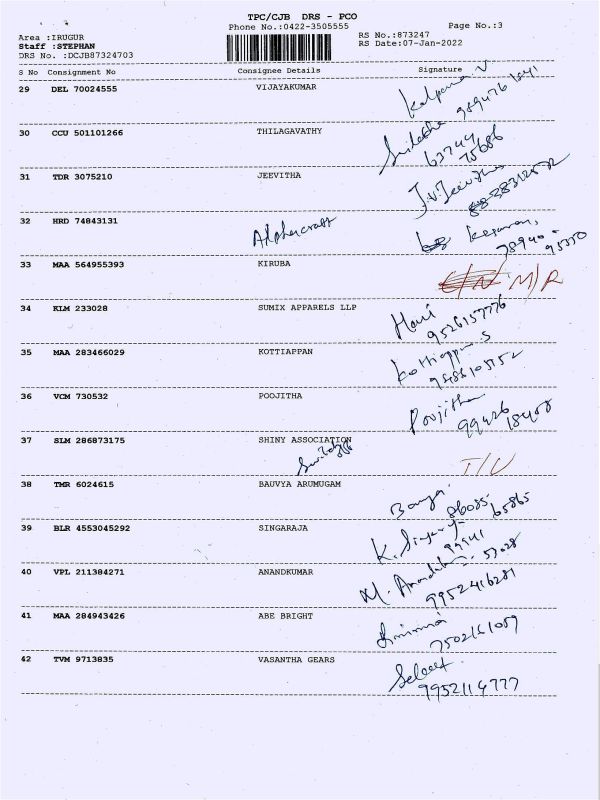 TPC/CJB DRS - PCO
Phone No.:0422-3505555 Page No.:3
Area :IRUGUR RS No.:873247
Staff :STEPHAN RS Date:07-Jan-2022
DRS No. :DCJB87324703
S No Consignment No Consignee Details Signature
29 DEL 70024555 VIJAYAKUMAR Kalpana V
30 CCU 501101266 THILAGAVATHY
63744
75686
31 TDR 3075210 JEEVITHA J.V.Jeevitha
32 HRD 74843131 Kesavan,
78940-
95370
33 MAA 564955393 KIRUBA M/R
34 KLM 233028 SUMIX APPARELS LLP Hari
9526157776
35 MAA 283466029 KOTTIAPPAN Kottiappan S
36 VCM 730532 POOJITHA Poojitha
99426
18408
37 SLM 286873175 SHINY ASSOCIATION
38 TMR 6024615 BAUVYA ARUMUGAM
86085
65865
39 BLR 4553045292 SINGARAJA
99941
53028
40 VPL 211384271 ANANDKUMAR M. Anandkumar
9952416281
41 MAA 284943426 ABE BRIGHT
7502161059
42 TVM 9713835 VASANTHA GEARS Select
9952114777